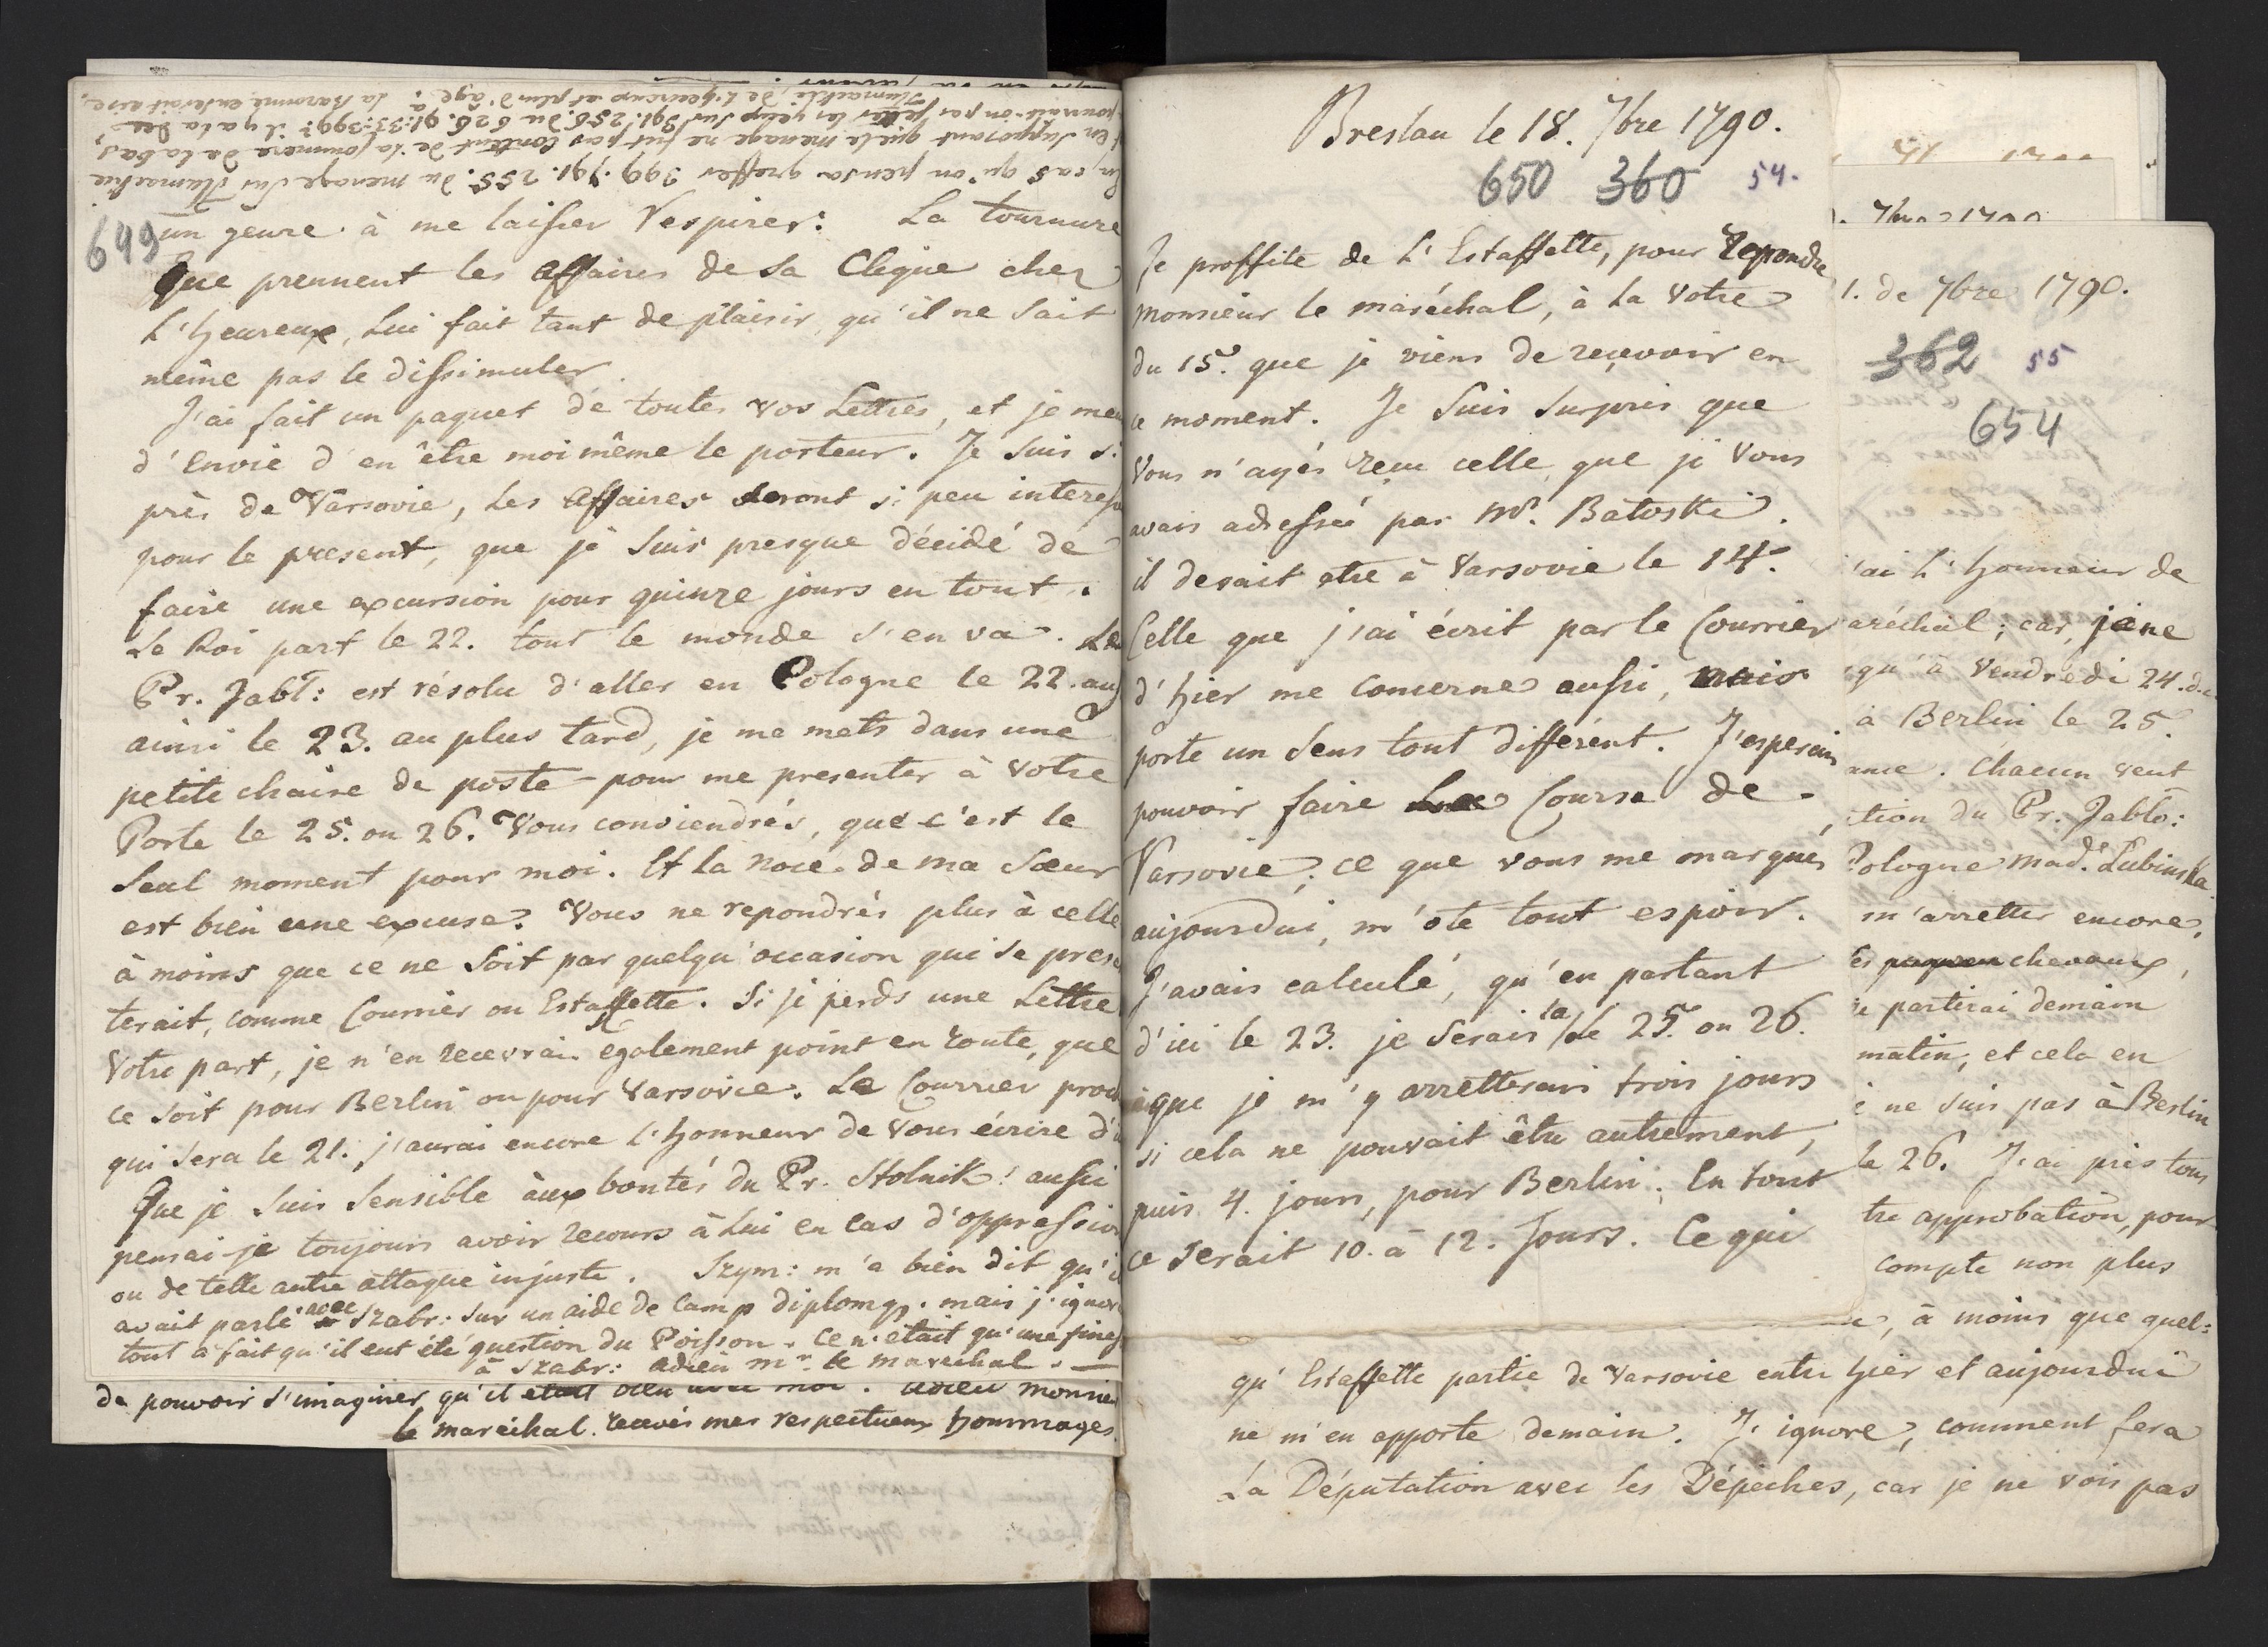 En cas qu'on pensa greffer 399. 791. 255. du menage sur Kumaskie
et en Supposant que le menage ne fut pas content de la somme de la bas,
pourrait-on pas jetter les yeux sur 391. 256. du 626. 91:35:399? il y a la Dee
Kumaskie, de L'heureux et plus d'âge. à la Baronne entrerait aise.
649
un genre à me laisser respirer. La tournure
que prennent les affaires de sa Clique chez
L'heureux, lui fait tant de plaisir, qu'il ne sait
même pas le dissimuler
J'ai fait un paquet de toutes vos Lettres, et je meu
d'envie d'en être moi même le porteur. Je suis si
près de Varsovie, les affaires seront si peu interess
pour le present, que je suis presque décidé de
faire une excursion pour quinze jours en tout.
Le Roi part le 22. tout le monde s'en va. Le
Pr. Jabl: est résolu d'aller en Pologne le 22. aus
ainsi le 23. au plus tard, je me mets dans une
petite chaise de poste pour me presenter à votre
Porte le 25. ou 26. Vous conviendrés, que c'est le
seul moment pour moi. Et la noce de ma soeur
est bien une excuse. Vous ne repondrés plus à celle
à moins que ce ne soit par quelqu'occasion qui se prese
terait, comme Courrier ou Estaffette. Si je perds une Lettre
votre part, je n'en recevrai également point en route, que
ce soit pour Berlin ou pour Varsovie. Le Courrier proch
qui sera le 21. j'aurai encore l'honneur de vous écrire d'i
Que je suis sensible aux bontés du Pr. Stolnik! aussi
pensai-je toujours avoir recours à lui en cas d'oppression
ou de telle autre attaque injuste. Szym: m'a bien dit qu'i
avait parlé avec Szabr: sur un aide de Camp diplomq. mais j'ignore
tout à fait qu'il eut été question du Poisson. Ce n'était qu'une fines
à Szabr: adieu mr. le marechal. —
de pouvoir s'imaginer qu'il était bien avec moi. adieu monsieu
le maréchal. recevés mes respectueux hommages.
Breslau le 18. 7bre 1790.
650 360 54.
Je proffite de L'Estaffette, pour repondre
monsieur le maréchal, à la votre
du 15. que je viens de reçevoir en
ce moment. Je suis surpris que
vous n'ayés reçu celle que je vous
avais adressée par Mr. Batoski.
il devait etre à Varsovie le 14.
Celle que j'ai écrit par le Courrier
d'hier me concerne aussi, mais
porte un sens tout différent. J'esperais
pouvoir faire la Course de
Varsovie; ce que vous me marqués
aujourdui, m'ote tout espoir.
J'avais calculé, qu'en partant
d'ici le 23. je serais la le 25. ou 26.
que je m'y arretterais trois jours
si cela ne pouvait être autrement,
puis 4. jours, pour Berlin; En tout
ce serait 10. à 12. Jours. Ce qui
7bre 1790
1. de 7bre 1790.
362 55
654
'ai l'honneur de
aréchal; car, je ne
qu'à vendredi 24. du
à Berlin le 25.
ance. Chacun veut
tion du Pr. Jablo:
Pologne Made. Lubinska
m'arretter encore,
es chevaux,
e partirai demain
matin, et cela en
e ne suis pas à Berlin
le 26. J'ai pris tous
tre approbation, pour
compte non plus
, à moins que quel:
qu'Estaffette partie de Varsovie entre hier et aujourdui
ne m'en apporte demain. J'ignore, comment fera
la Députation avec les Dépeches, car je ne vois pas